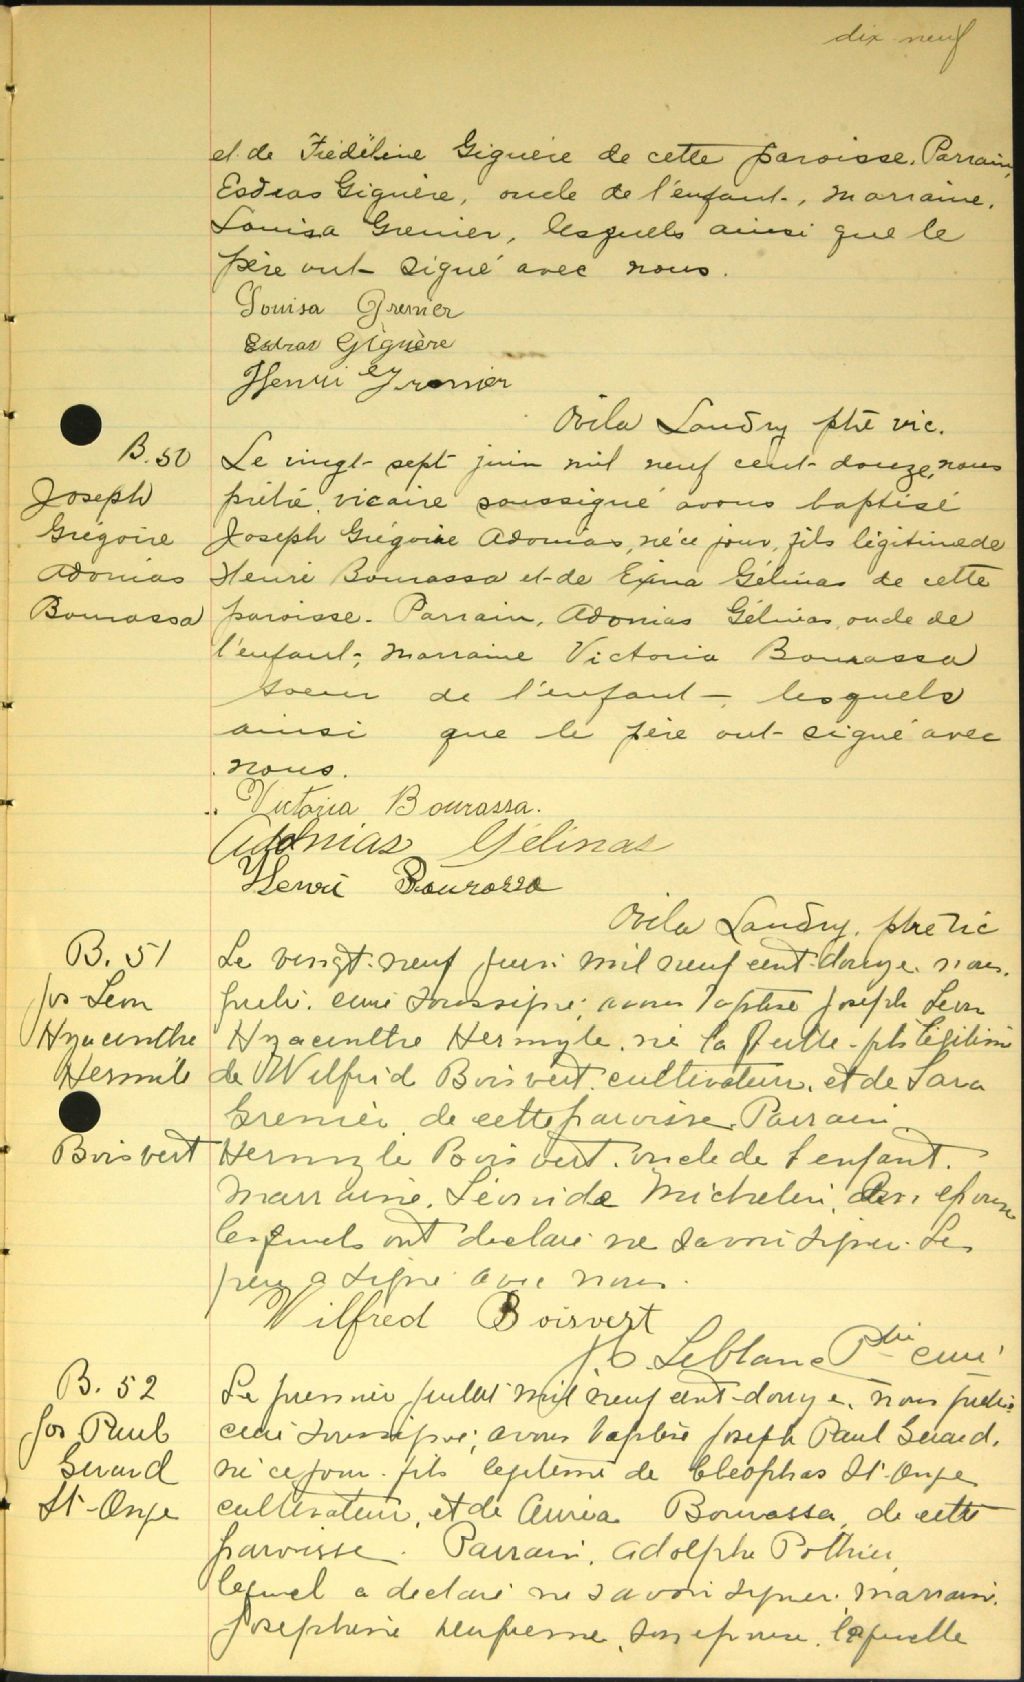 dix neuf
et de Frédéline Giguère de cette paroisse. Parrain,
Esdras Giguère, oncle de l'enfant, marraine,
Louisa Grenier, lesquels ainsi que le
père ont signé avec nous.
Louisa Grenier
Esdras Giguère
Henri Grenier
Ovila Landry ptre vic.
B. 50
Joseph
Grégoire
Adonias
Bourassa
Le vingt-sept juin mil neuf cent-douze, nous
prêtre, vicaire soussigné avons baptisé
Joseph Grégoire Adonias, né ce jour, fils légitime de
Henri Bourassa et de Exina Gélinas de cette
paroisse. Parrain, Adonias Gélinas, oncle de
l'enfant; marraine Victoria Bourassa
soeur de l'enfant, lesquels
ainsi que le père ont signé avec
nous.
Victoria Bourassa.
Adonias Gélinas
Henri Bourassa
Ovila Landry, ptre vic
B. 51
Jos-Léon
Hyacinthe
Hermile
Boisvert
Le vingt-neuf juin mil neuf cent-douze, nous,
prêtre, curé soussigné, avons baptisé Joseph Léon
Hyacinthe Hermyle, né la veille, fils légitime
de Wilfrid Boisvert, cultivateur, et de Sara
Grenier, de cette paroisse. Parrain,
Hermyle Boisvert, oncle de l'enfant.
Marraine, Léonide Michelin, son épouse
lesquels ont déclaré ne savoir signer. Le
père a signé avec nous.
Wilfred Boisvert
Leblanc Ptre curé
B. 52
Jos Paul
Gérard
St-Onge
Le premier juillet mil neuf cent-douze, nous prêtre
curé soussigné, avons baptisé Joseph Paul Gérard,
né ce jour, fils légitime de Cléophas St-Onge
cultivateur, et de Auréa Bourassa, de cette
paroisse. Parrain, Adolphe Pothier,
lequel a déclaré ne savoir signer, marraine,
Josephine Dufresne, son épouse, laquelle